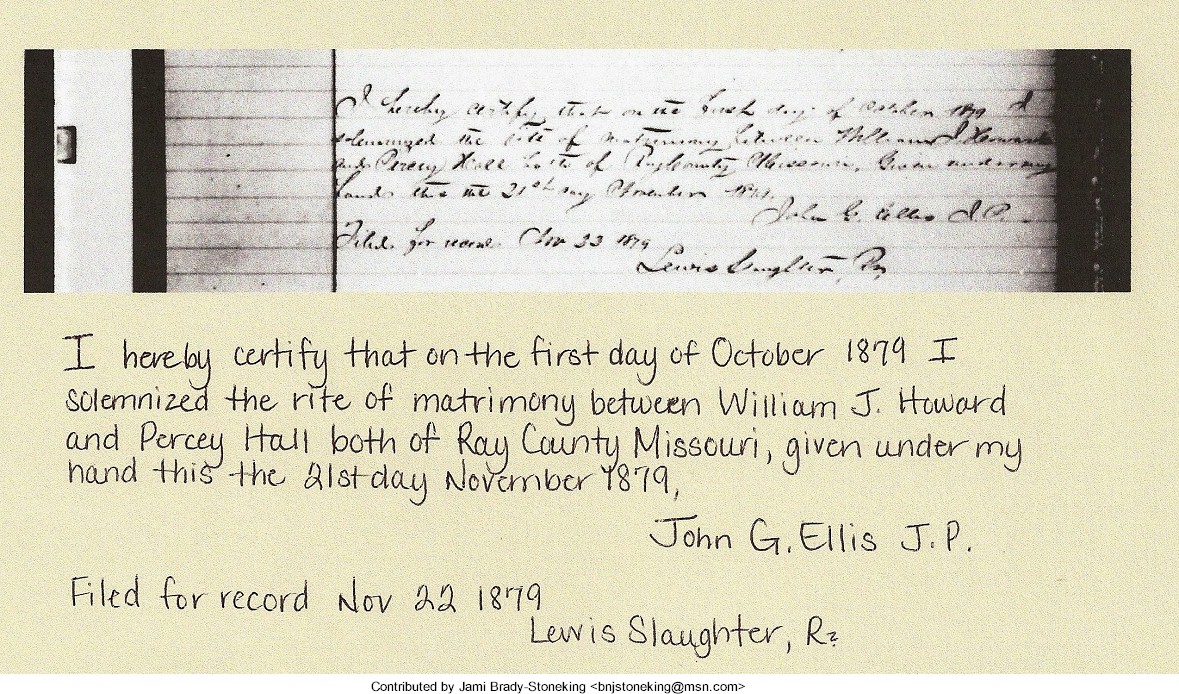 I hereby certify that on the first day of October 1879 I
solemnized the rite of matrimony between William J. Howard
and Percey Hall both of Ray County Missouri, Given under my
hand this the 21st day November 1879.
John G. Ellis J.P.
Filed for record Nov 22 1879
Lewis Slaughter, Rr
I hereby certify that on the first day of October 1879 I
solemnized the rite of matrimony between William J. Howard
and Percey Hall both of Ray County Missouri, given under my
hand this the 21st day November 1879,
John G. Ellis J.P.
Filed for record Nov 22 1879
Lewis Slaughter, R?
Contributed by Jami Brady-Stoneking <bnjstoneking@msn.com>